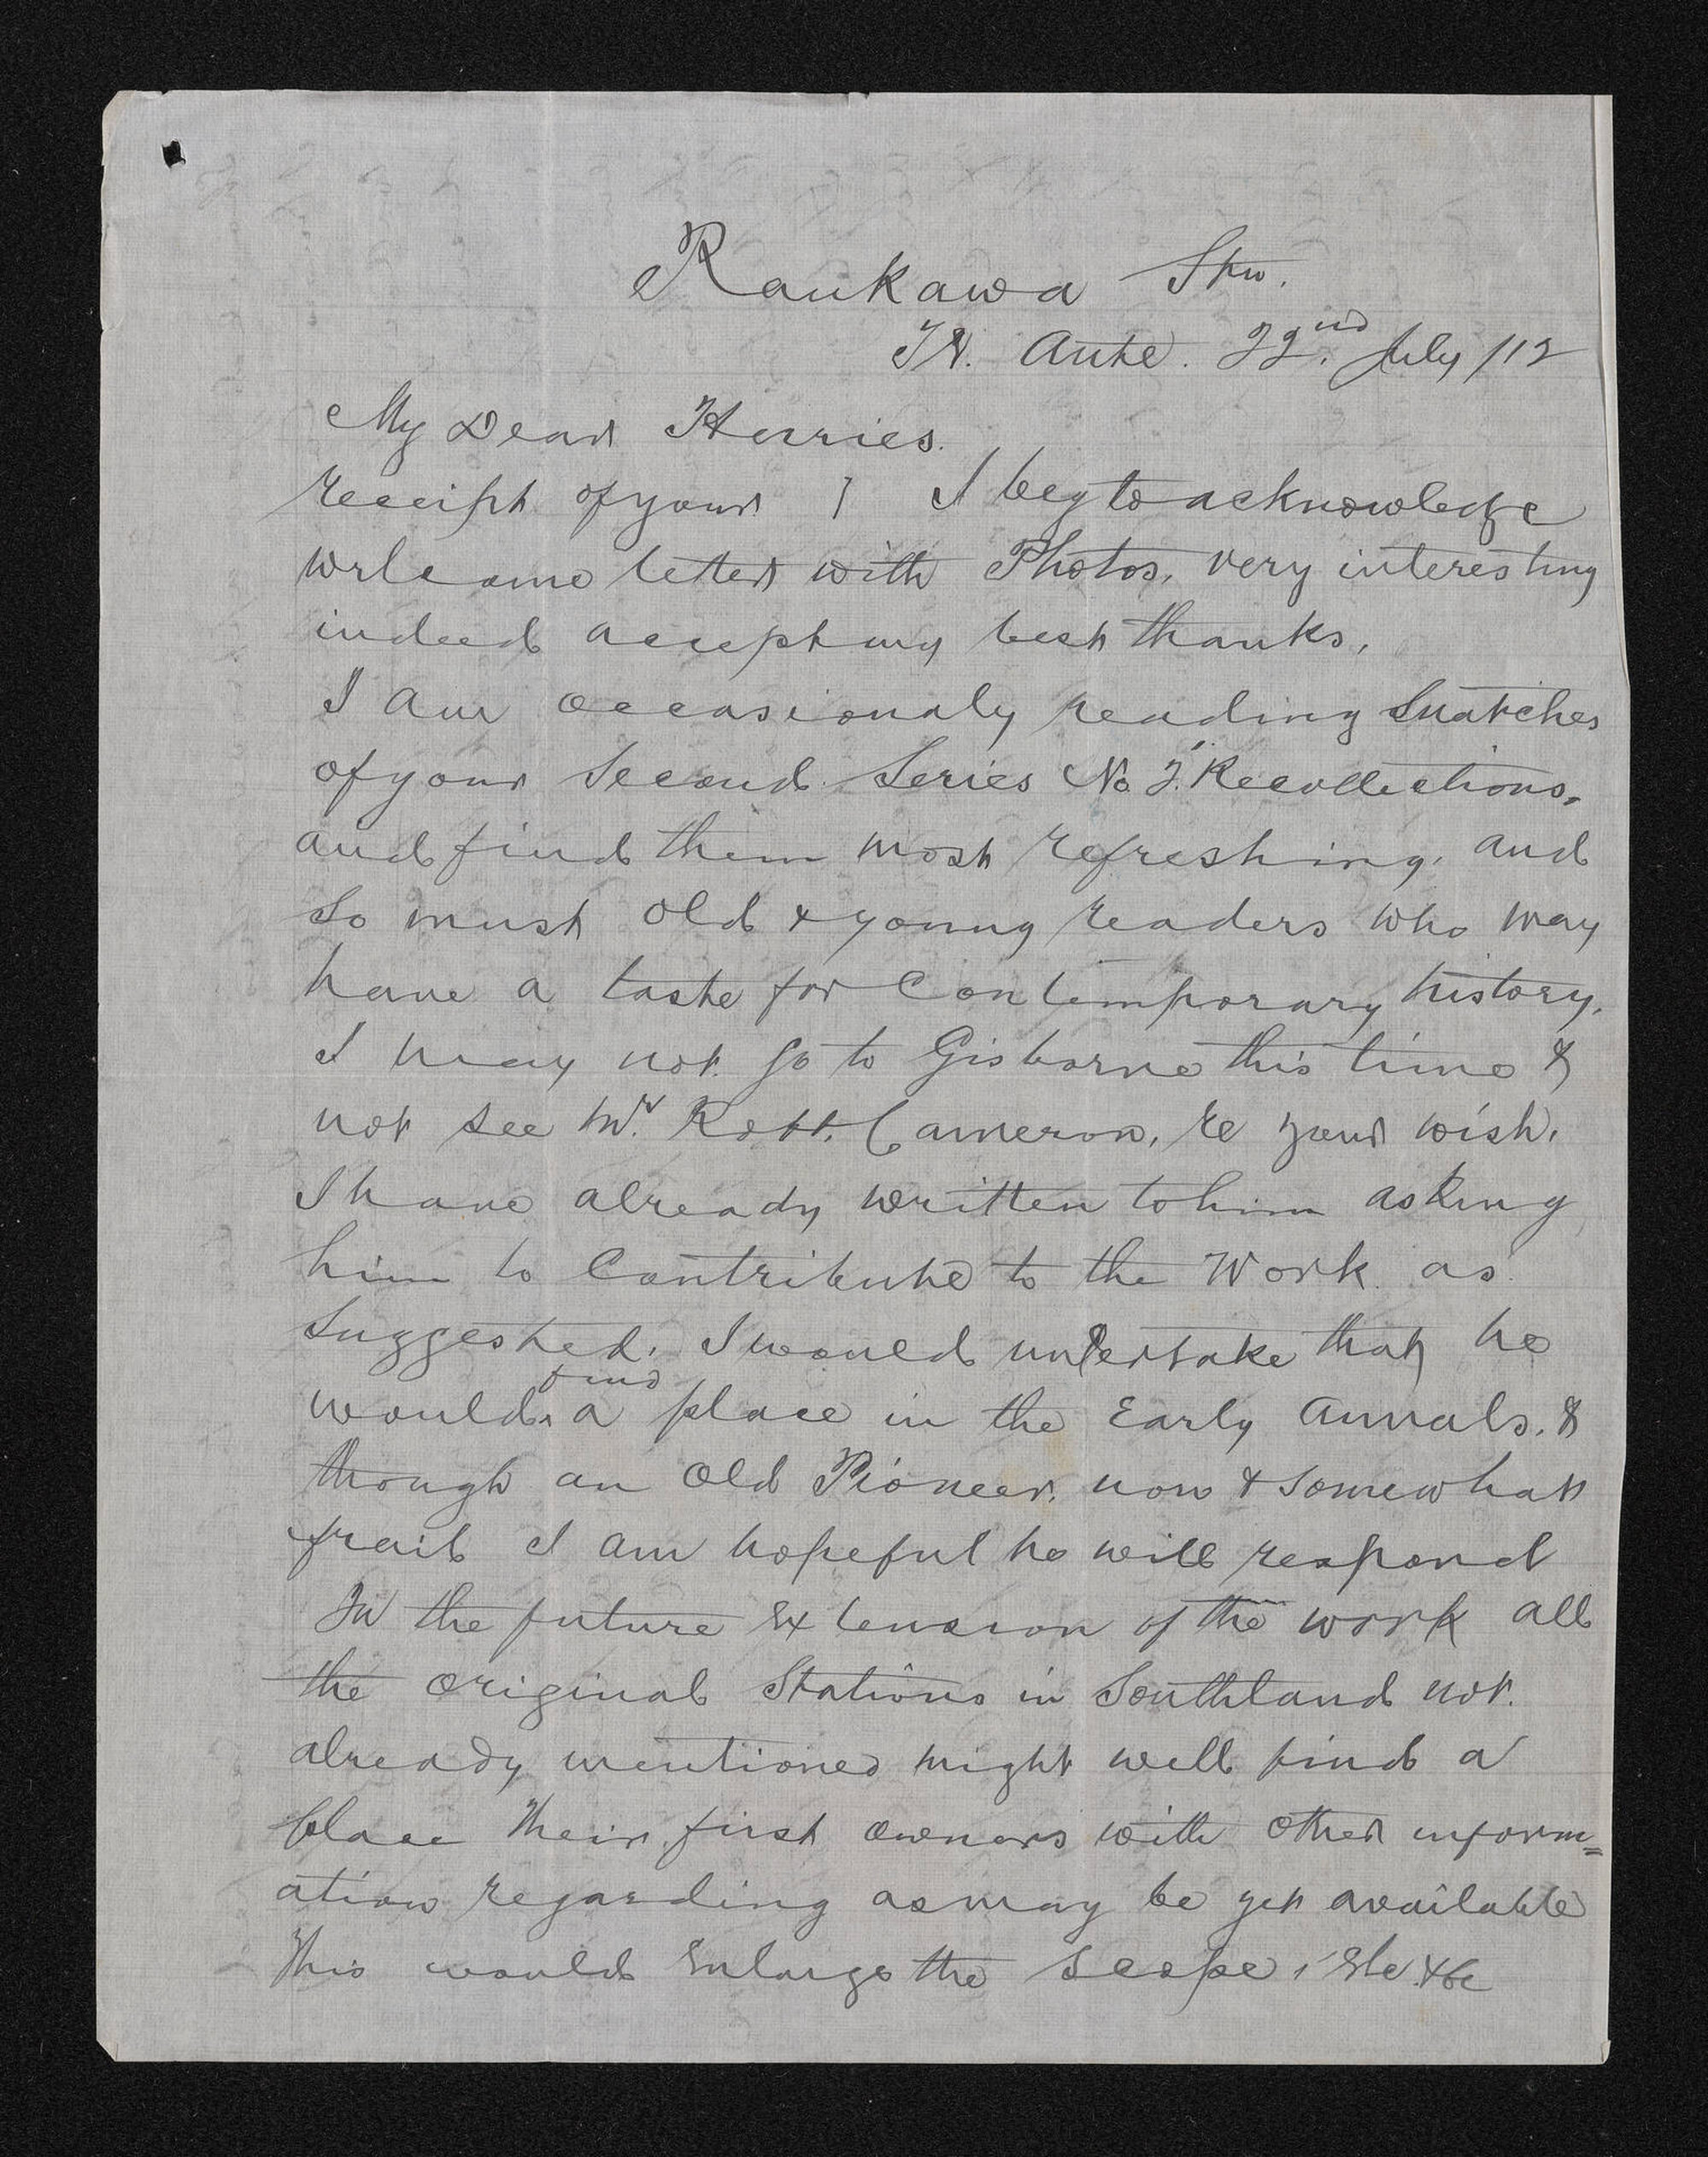 Raukawa Stn.
Te Aute. 22.nd July /12
My Dear Herries.
receipt of your } I beg to acknowledge
welcome letter with Photos, very interesting
indeed accept my best thanks.
I am occasionaly reading snatches
of your Second Series No 2. "Recollections,
and find them most refreshing, and
so must old & young readers who may
have a taste for Contemporary history.
I may not go to Gisborne this time &
not see Mr. Robt. Cameron, re your wish.
I have already written to him asking
him to Contribute to the Work as
suggested. I would undertake that he
would find a place in the Early Annals. &
though an Old Pioneer, now & somewhat
frail I am hopeful he will respond
In the future Extension of the work all
the original Stations in Southland not
already mentioned might well find a
place Their first owners with other inform=
ation regarding as may be yet available
This would Enlarge the scope, Etc &c